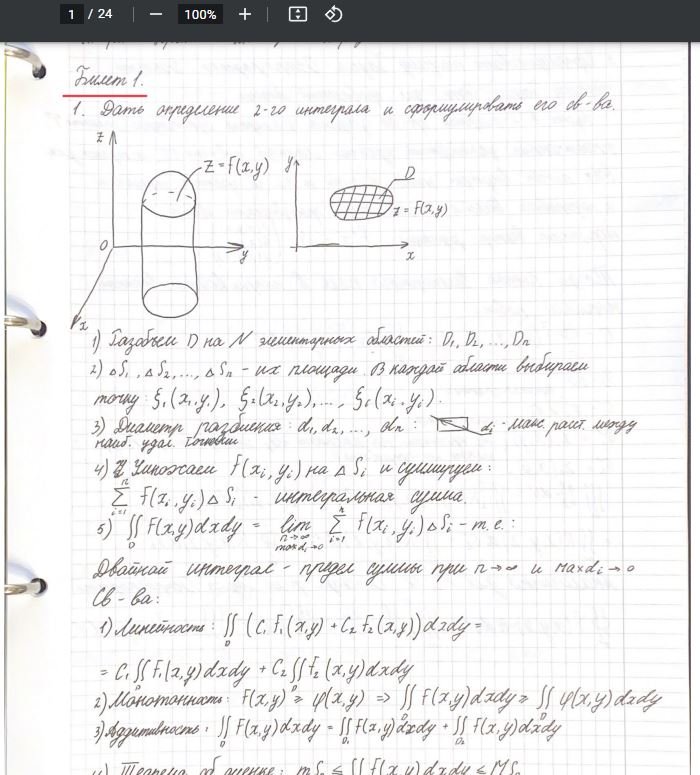 1 / 24
100%
Билет 1.
1. Дать определение 2-го интеграла и сформулировать его св-ва.
z
z = f(x,y)
y
D
0
z = f(x,y)
y
x
x
1) Разобьем D на N элементарных областей: D₁, D₂, ..., Dn
2) △S₁, △S₂, ..., △Sn - их площади. В каждой области выбираем
точку: ξ₁(x₁,y₁), ξ₂(x₂,y₂),..., ξi(xi, yi).
3) Диаметр разбиения: d₁, d₂, ..., dn : di - макс. расст. между
наиб. удал. точками
4) Умножаем f(xi, yi) на △Si и суммируем:
∑ⁿᵢ₌₁ f(xi, yi)△Si - интегральная сумма.
5) ∬_D f(x,y)dxdy = lim_{n→∞, max di→0} ∑ⁿᵢ₌₁ f(xi, yi)△Si - т.е.:
Двойной интеграл - предел суммы при n→∞ и max di→0
Св-ва:
1) Линейность: ∬_D (C₁f₁(x,y) + C₂f₂(x,y))dxdy =
= C₁∬_D f₁(x,y)dxdy + C₂∬f₂(x,y)dxdy
2) Монотонность: f(x,y) ≥ φ(x,y) => ∬_D f(x,y)dxdy ≥ ∬_D φ(x,y)dxdy
3) Аддитивность: ∬_D f(x,y)dxdy = ∬_D₁ f(x,y)dxdy + ∬_D₂ f(x,y)dxdy
4) Теорема об оценке: mS ≤ ∬ f(x,y)dxdy ≤ MS